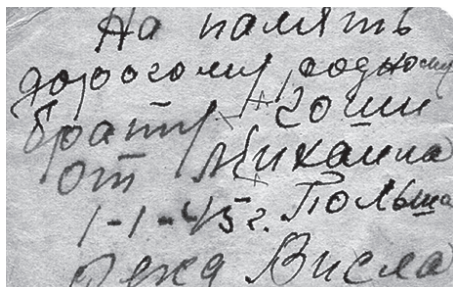 На память
дорогому родному
брату Гоши
от Михаила
1-1-45 г. Польша
река Висла